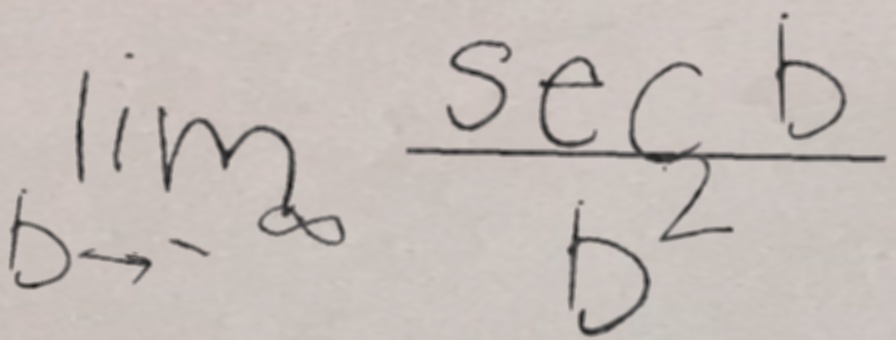 lim b→-∞ sec b / b²